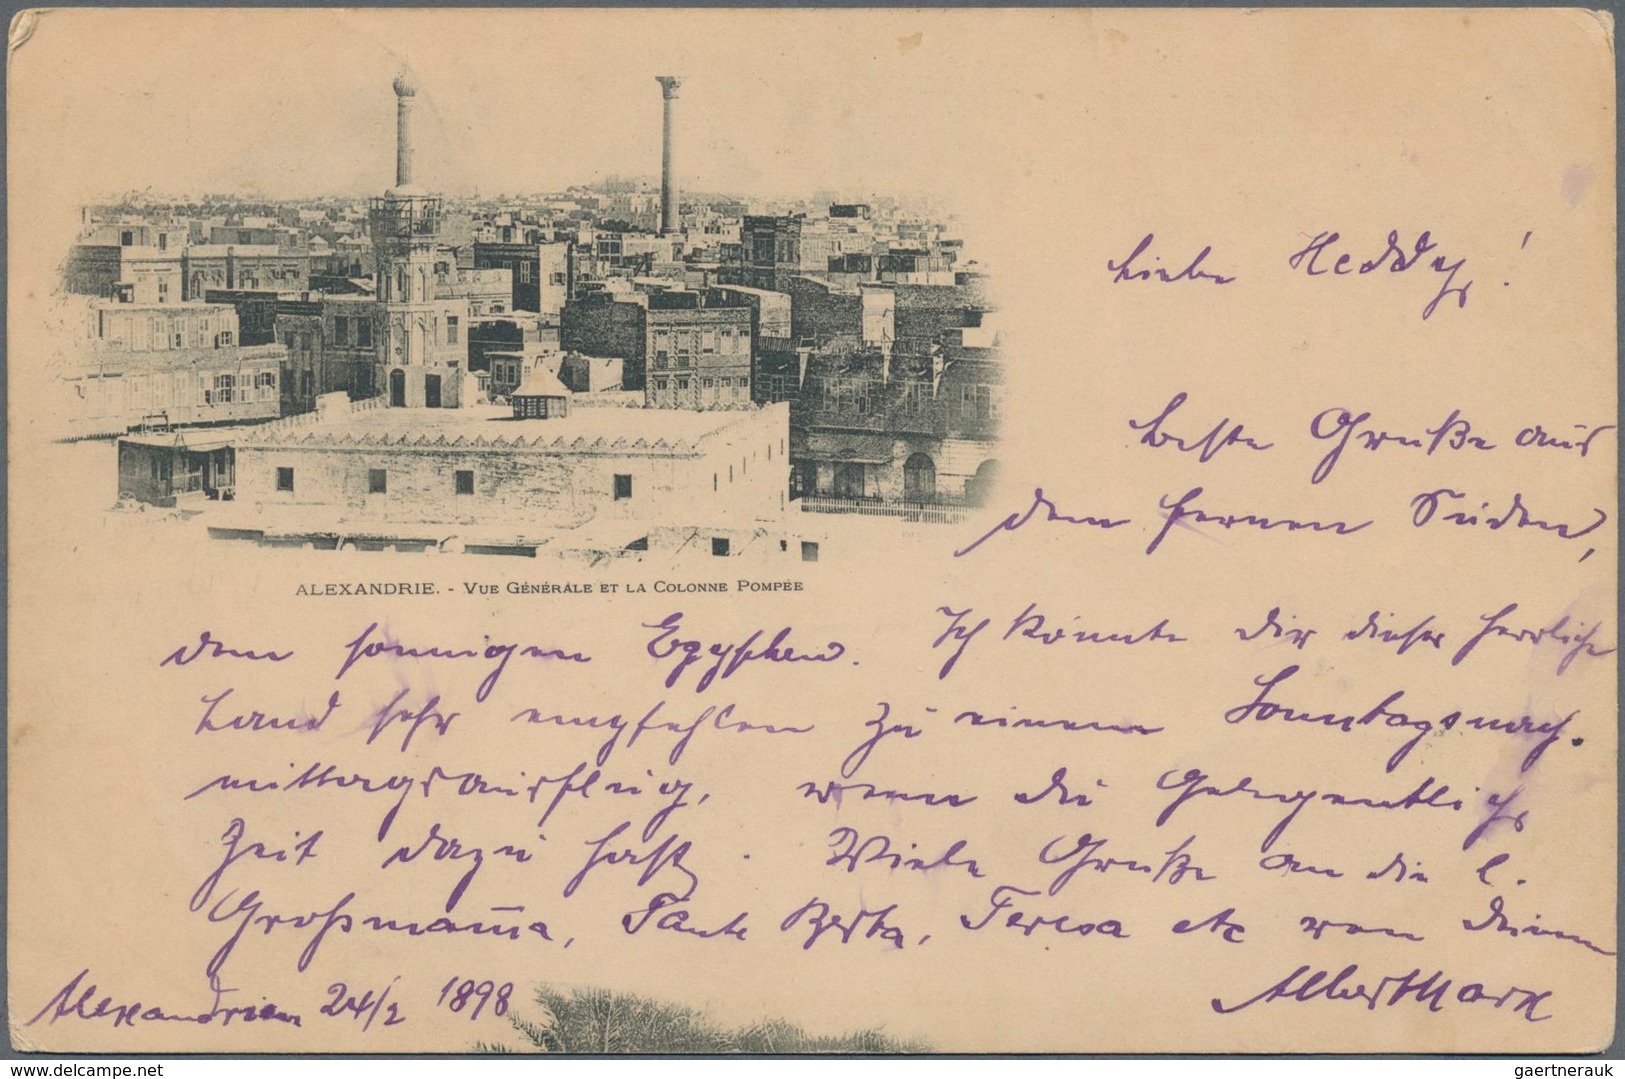 Liebe Heddy!
beste Grüße aus
dem fernen Süden,
ALEXANDRIE. - VUE GÉNÉRALE ET LA COLONNE POMPÉE
dem sonnigen Egypten. Ich könnte dir dieses herrliche
Land sehr empfehlen zu einem Sonntagsnach-
mittagsausflug, wenn du gelegentlich
Zeit dazu hast. Viele Grüße an die l.
Großmama, Tante Berta, Teresa etc von Deinem
Albert Mark
Alexandrien 24/2 1898
www.delcampe.net
gaertnerauk